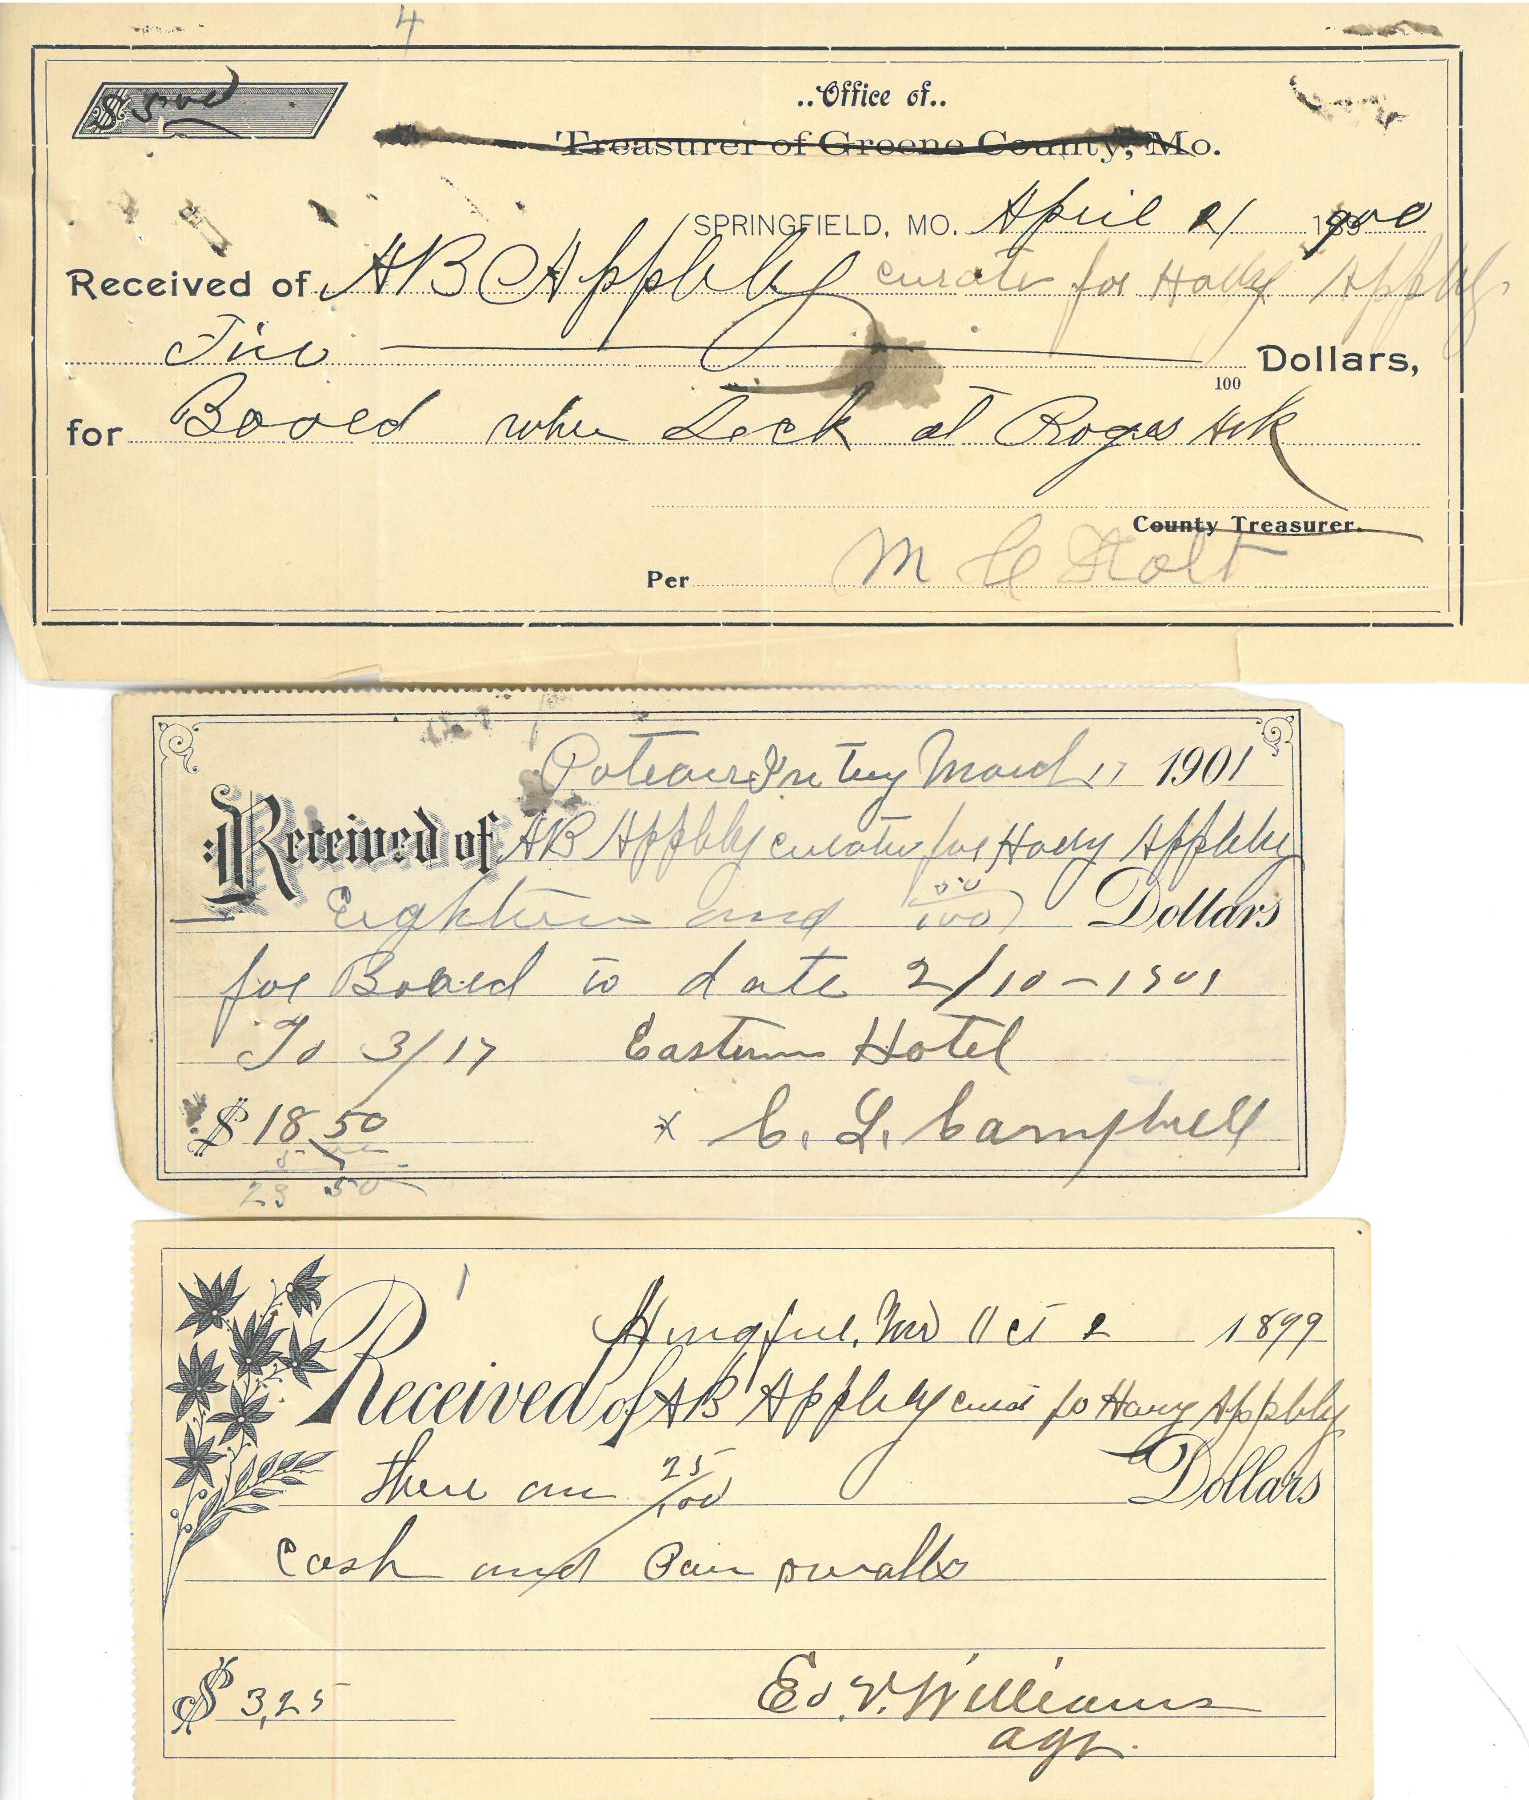 4
$ 5.00
..Office of..
Treasurer of Greene County, Mo.
SPRINGFIELD, MO. April 21 1900
Received of A B Appleby curator for Harry Appleby
Five Dollars,
100
for Board when Sick at Rogers Ark
County Treasurer.
Per M C Holt
Ter March 17 1901
Received of A B Appleby curator for Harry Appleby
Eighteen and 50/100 Dollars
for Board to date 2/10-1901
To 3/17 Eastern Hotel
$ 18 50 x C. L. Campbell
5
23 50
1
Mo Oct 2 1899
Received of A B Appleby curat fo Harry Appleby
three and 25/100 Dollars
Cash and Pair
$ 3,25 Ed. V. Williams
agt.